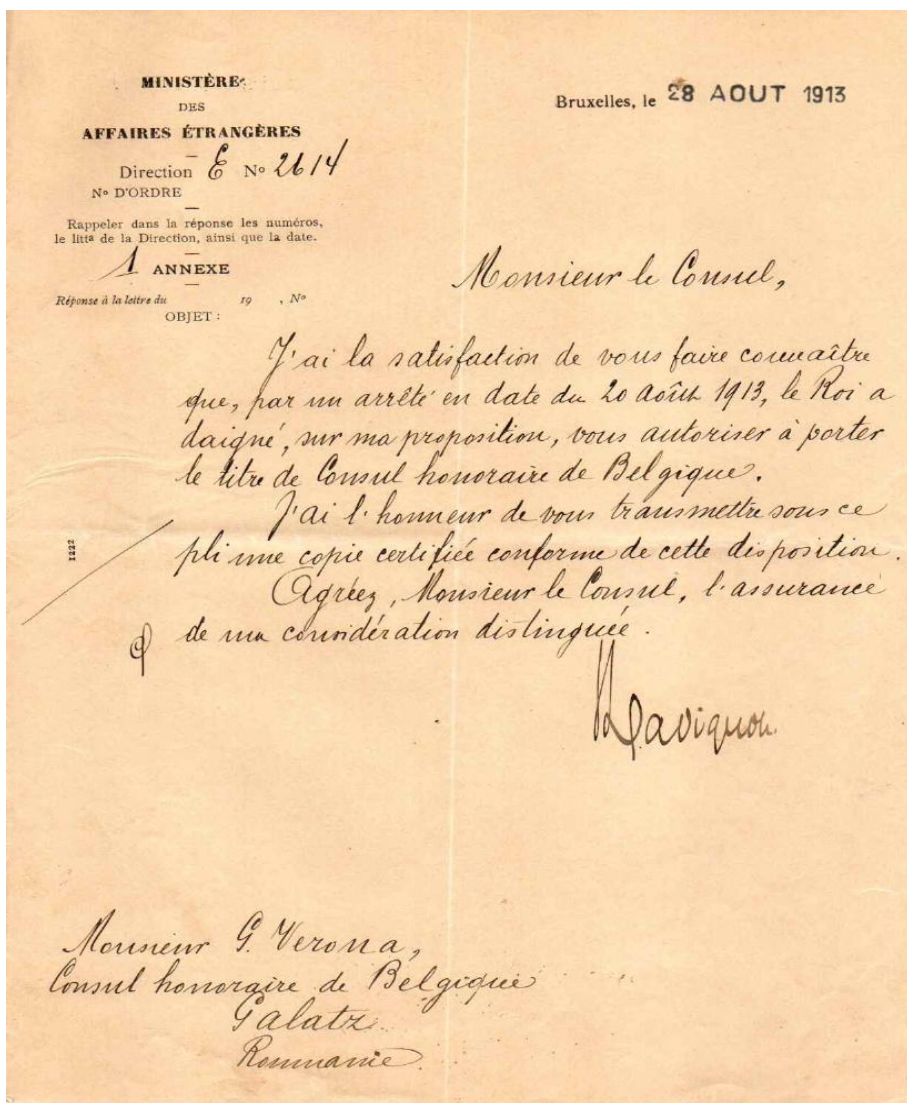 MINISTÈRE
DES
AFFAIRES ÉTRANGÈRES
Direction E No 2614
No D'ORDRE
Rappeler dans la réponse les numéros,
le litta de la Direction, ainsi que la date.
1 ANNEXE
Réponse à la lettre du 19 , No
OBJET :
Bruxelles, le 28 AOUT 1913
Monsieur le Consul,
J'ai la satisfaction de vous faire connaître
que, par un arrêté en date du 20 Août 1913, le Roi a
daigné, sur ma proposition, vous autoriser à porter
le titre de Consul honoraire de Belgique.
J'ai l'honneur de vous transmettre sous ce
pli une copie certifiée conforme de cette disposition.
Agréez, Monsieur le Consul, l'assurance
de ma considération distinguée.
Davignon.
1222
Monsieur G. Verona,
Consul honoraire de Belgique
Galatz
Roumanie.